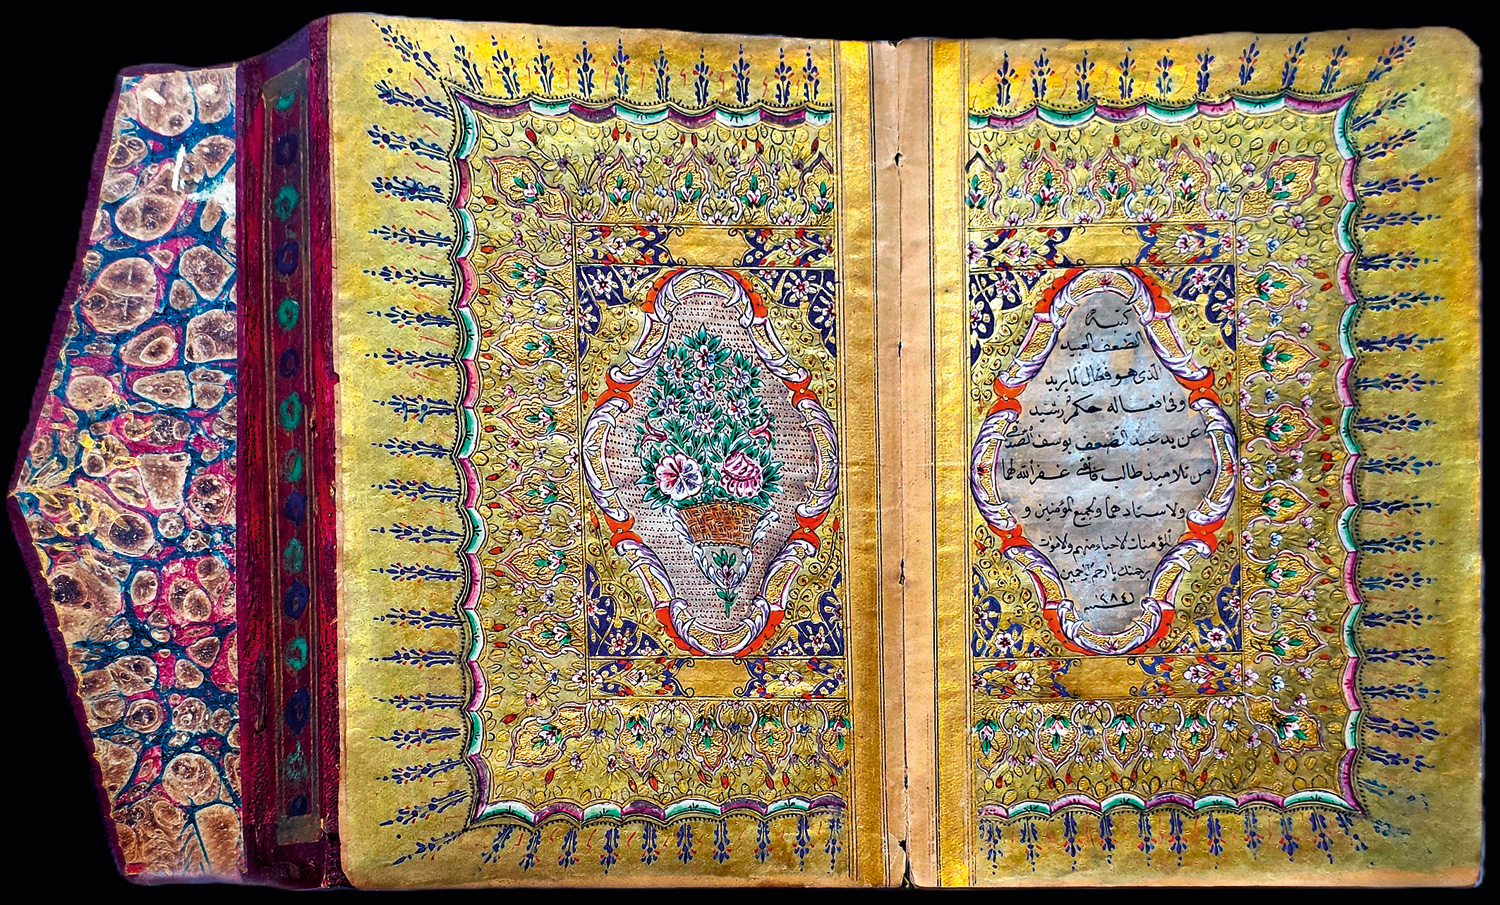 كتبه
الضعف العبيد
الذى هو فعال لما يريد
وفى افعاله حكم رشيد
عن يد عبد الضعف يوسف
من تلاميذ طالب غفر الله لها
ولاستادهما ولجميع المؤمنين و
المؤمنات الاحياء منهم والاموات
برحمتك يا ارحم الراحمين
سنه ١٢٨٤